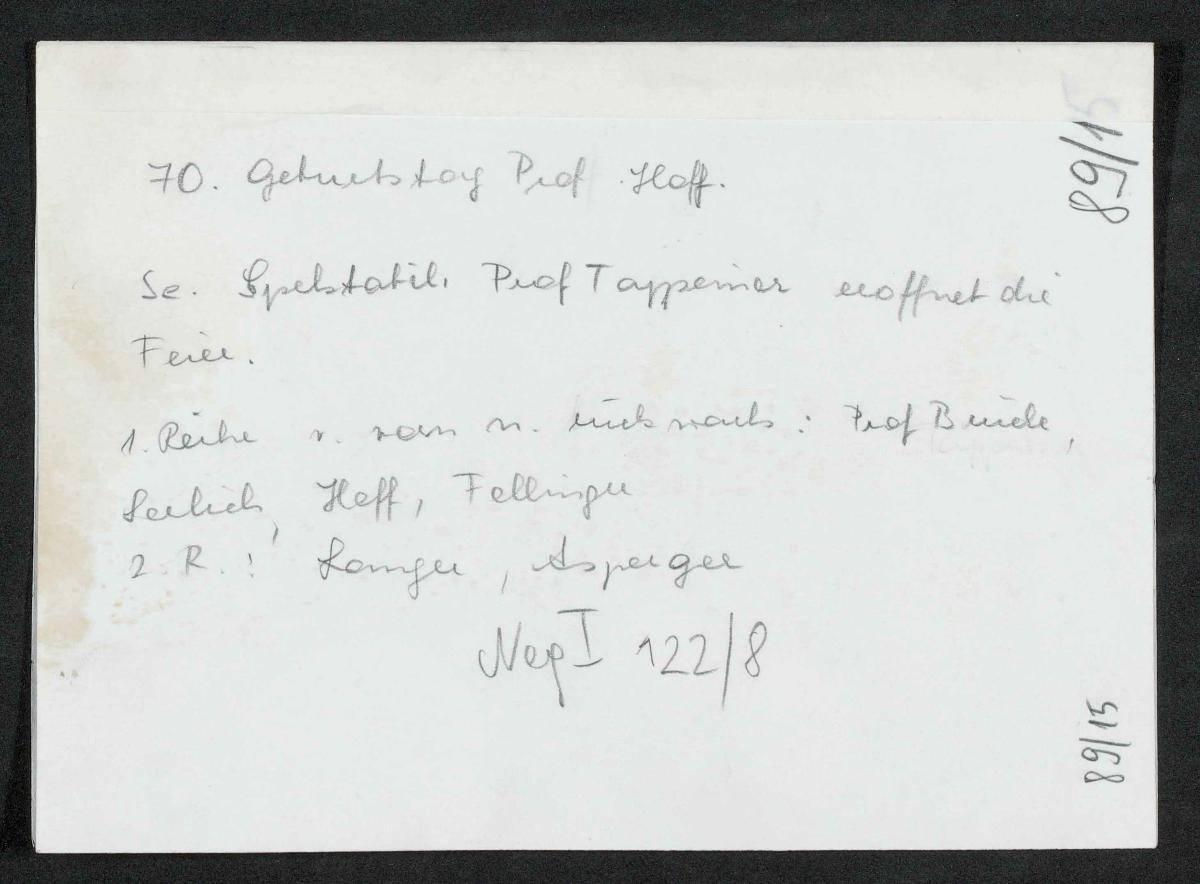 70. Geburtstag Prof. Hoff.
Se. Spektabil. Prof Tappeiner eröffnet die
Feier.
1. Reihe v. vorn n. rückwärts: Prof Brücke,
Seelich, Hoff, Fellinger
2. R.: Langer, Asperger
Neg I 122/8
89/15
89/15